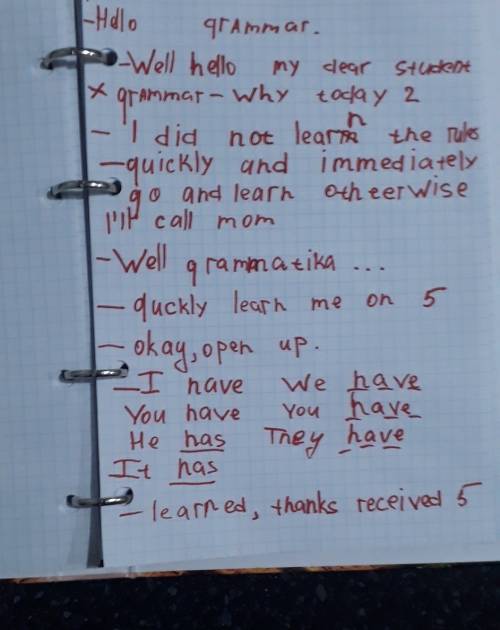 -Hello grammar.
-Well hello my dear student
x grammar - why today 2
- I did not learn the rules
-quickly and immediately
go and learn otheerwise
I'll call mom
-Well grammatika ...
- quckly learn me on 5
- okay, open up.
-I have We have
You have You have
He has They have
It has
- learned, thanks received 5